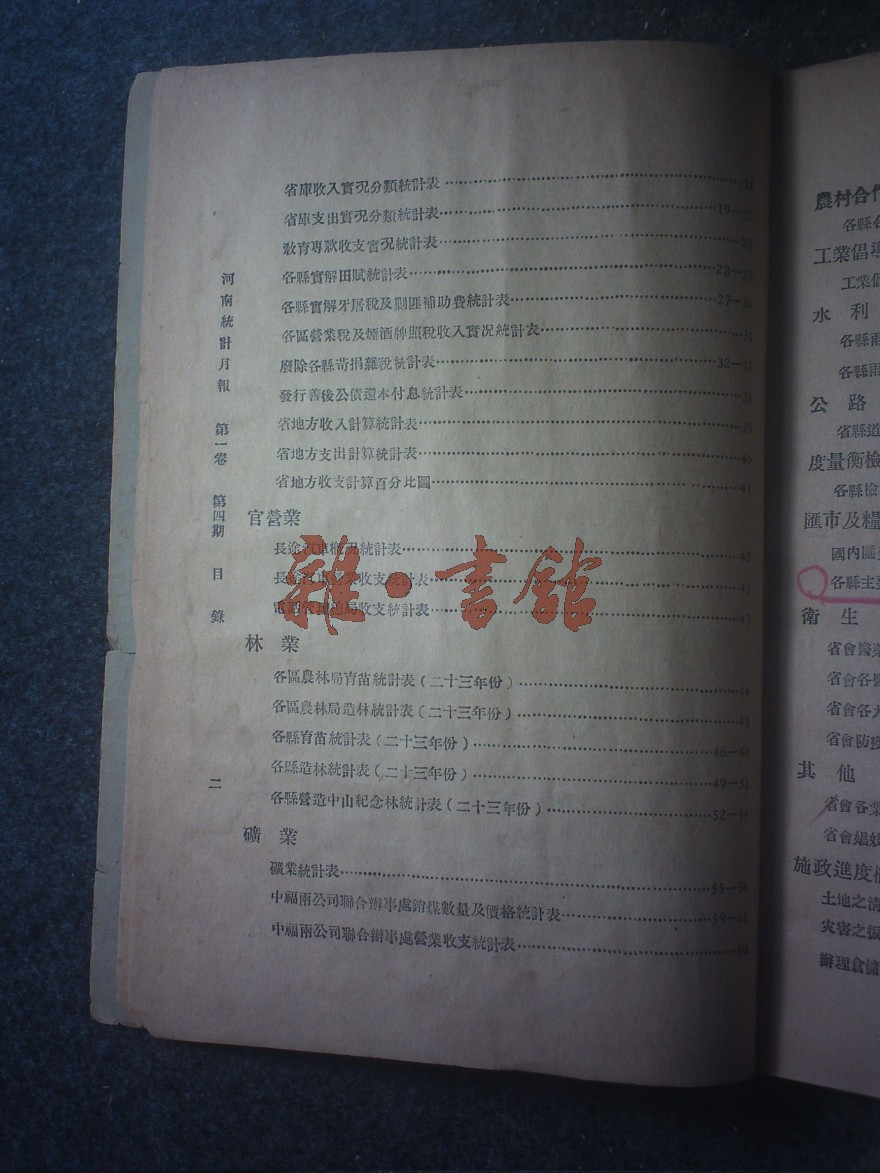 省庫收入實況分類統計表
省庫支出實況分類統計表 19—
教育專款收支實況統計表
各縣實解田賦統計表 23—26
各縣實解牙屠稅及剿匪補助費統計表 27—
各區營業稅及煙酒牌照稅收入實況統計表
廢除各縣苛捐雜稅統計表 32—37
發行善後公債還本付息統計表 38
省地方收入計算統計表 39
省地方支出計算統計表 40
省地方收支計算百分比圖 41
官營業
長途汽車概況統計表 42
長途汽車營業收支統計表 42
電話管理總局收支統計表 43
林業
各區農林局育苗統計表(二十三年份) 44
各區農林局造林統計表(二十三年份) 45
各縣育苗統計表(二十三年份) 46—48
各縣造林統計表(二十三年份) 49—51
各縣營造中山紀念林統計表(二十三年份) 52—54
礦業
礦業統計表 55—58
中福兩公司聯合辦事處銷煤數量及價格統計表 59—61
中福兩公司聯合辦事處營業收支統計表
河南統計月報 第一卷 第四期 目錄
二
雜·書館
農村合作
各縣合
工業倡導
工業倡
水利
各縣雨
各縣雨
公路
省縣道
度量衡檢
各縣檢
匯市及糧
國內匯
各縣主要
衛生
省會醫藥
省會各醫
省會各大
省會防疫
其他
省會各業
省會娼妓
施政進度概
土地之清
災害之振
辦理倉儲